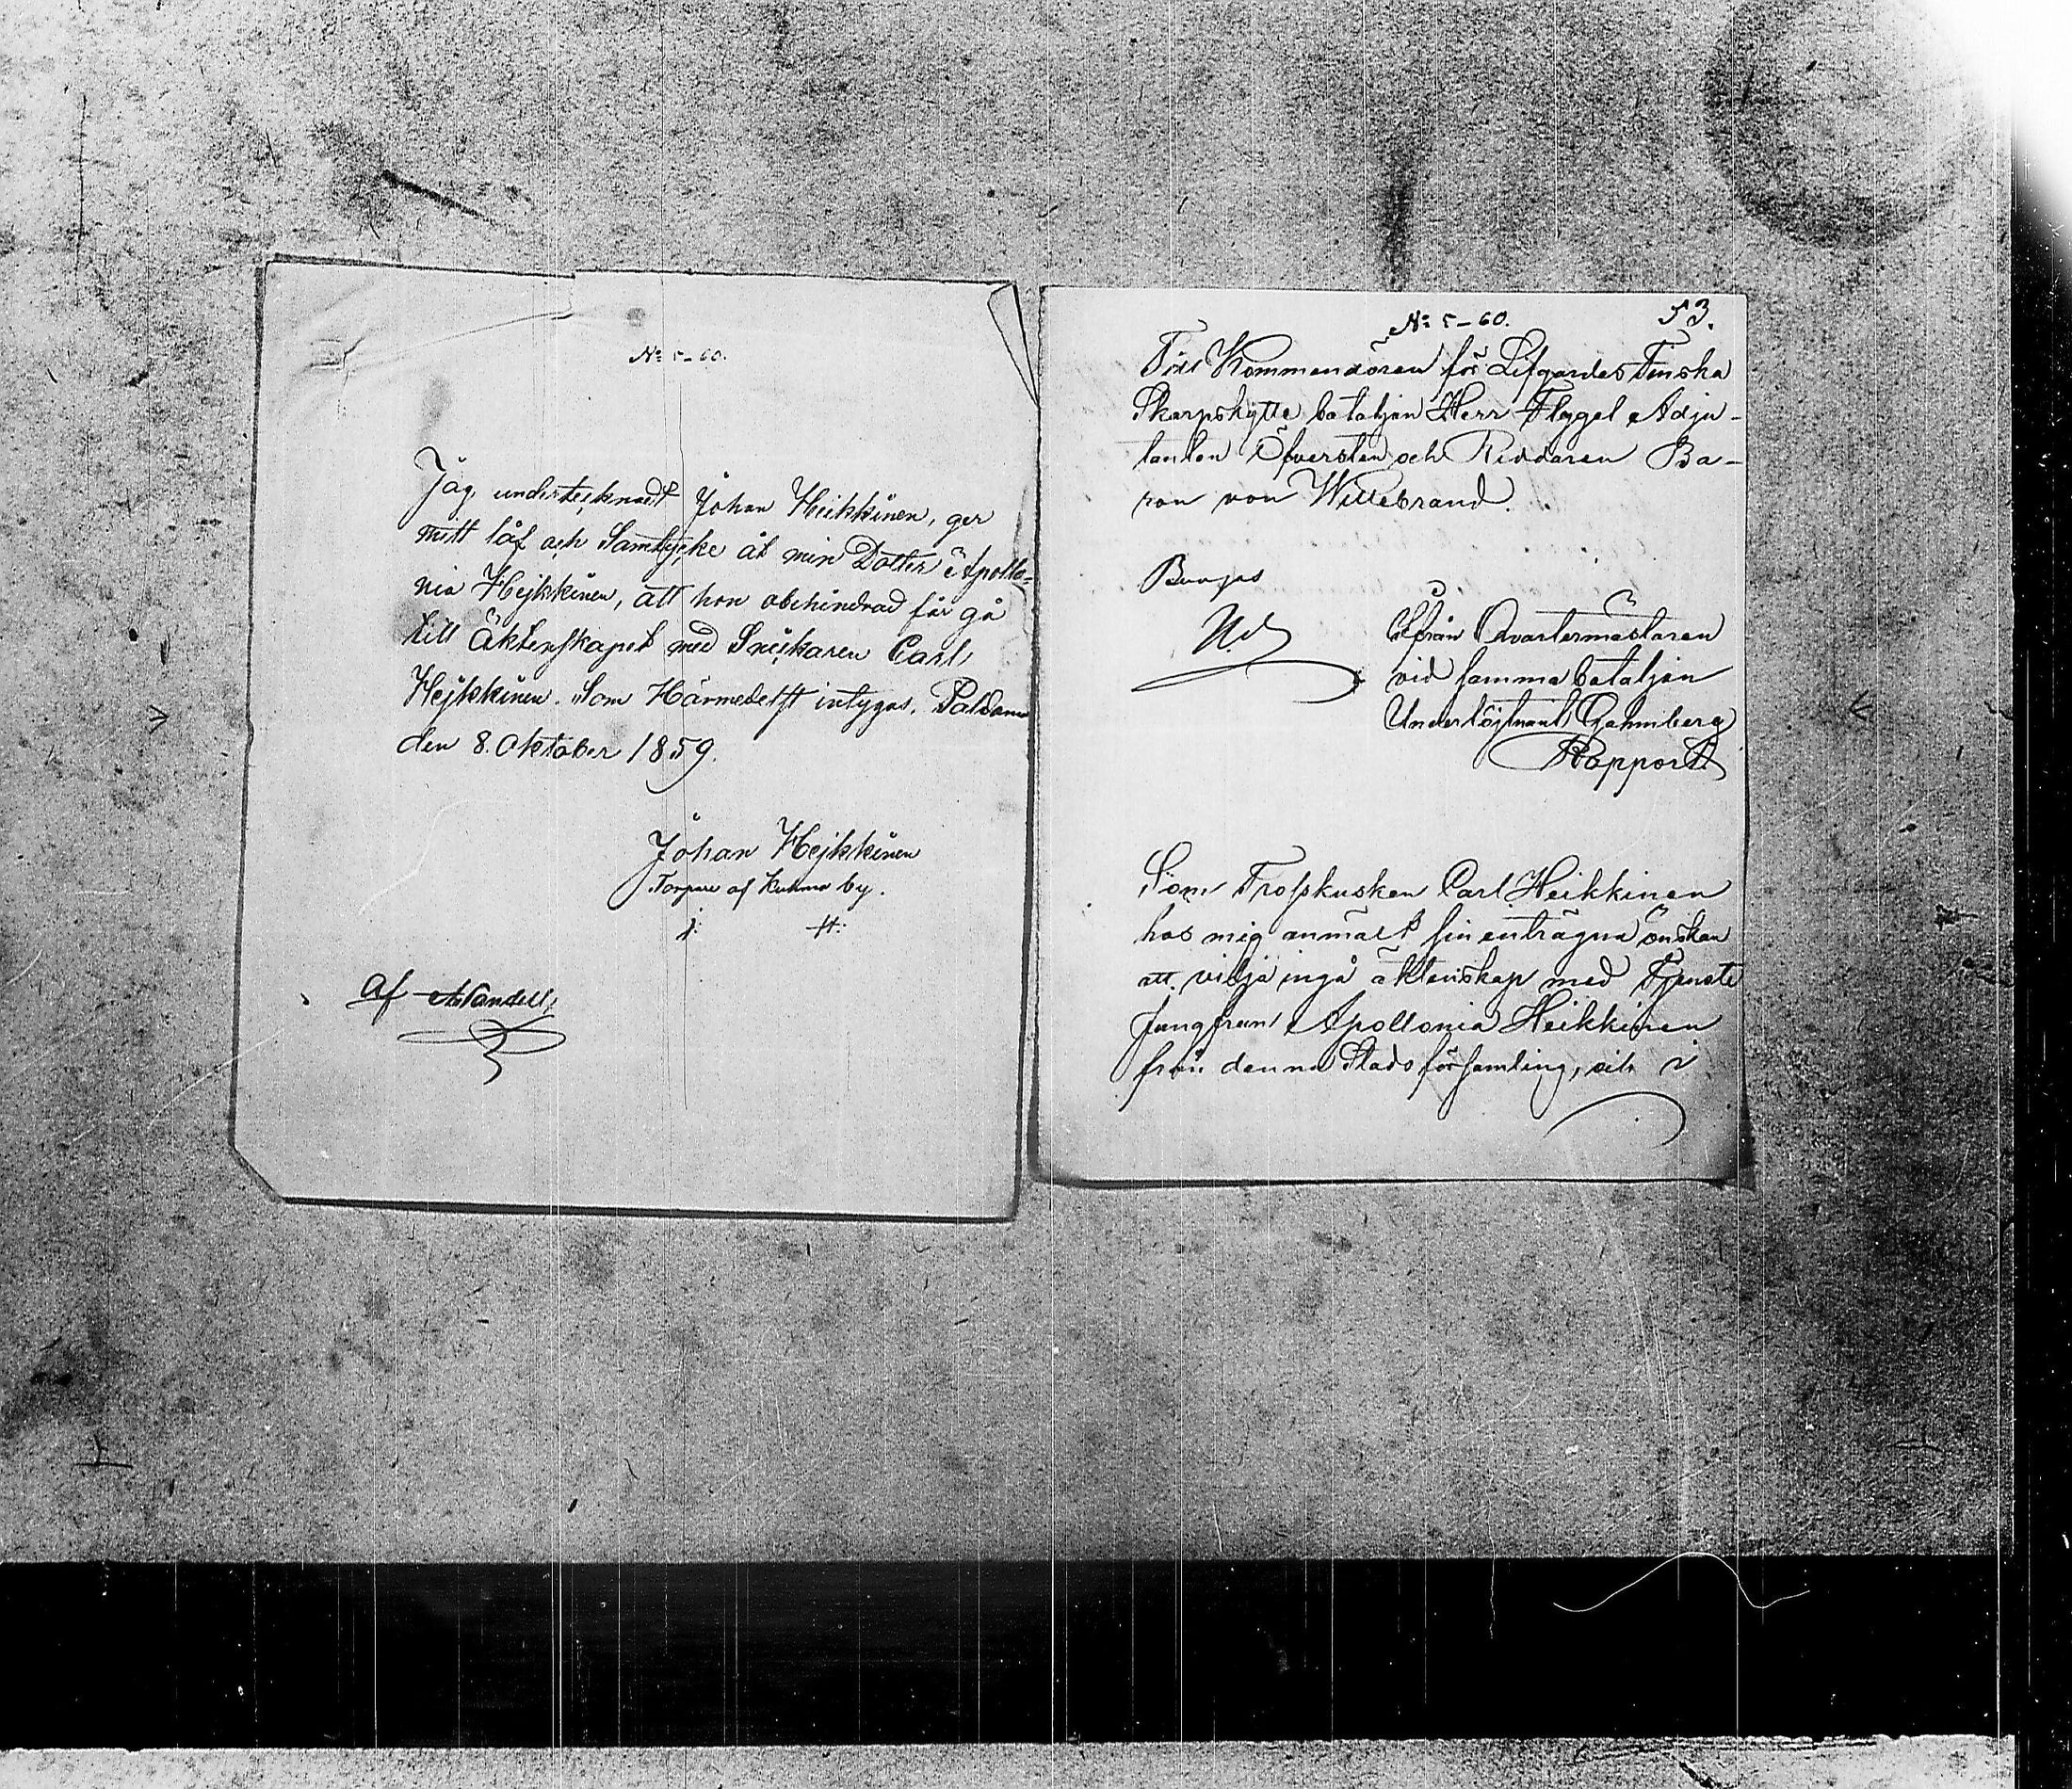 No 5–60.
Jag undertecknadt Johan Heikkinen, ger
mitt låf och Samtycke åt min Dotter Apollo=
nia Hejkkinen, att hon obehindrad får gå
till Äktenskapet med Snickaren Carl
Hejkkinen. Som Härmedelst intygas. Paldamo
den 8. Oktober 1859.
Johan Hejkkinen
Torpare af Kuhmo by.
J: H:
Af
No 5–60. 53.
Till Kommendören för Lifgardes Finska
Skarpskytte bataljon Herr Flygel Adju-
tanten Öfversten och Riddaren Ba-
ron von Willebrand.
Ifrån Qvartermästaren
vid samma bataljon
Underlöjtnant
Rapport.
Som Trosskusken Carl Heikkinen
hos mig anmält sin enträgna önskan
att vilja ingå äktenskap med Tjenste
Jungfrun Apollonia Heikkinen
från denna Stads församling, och i